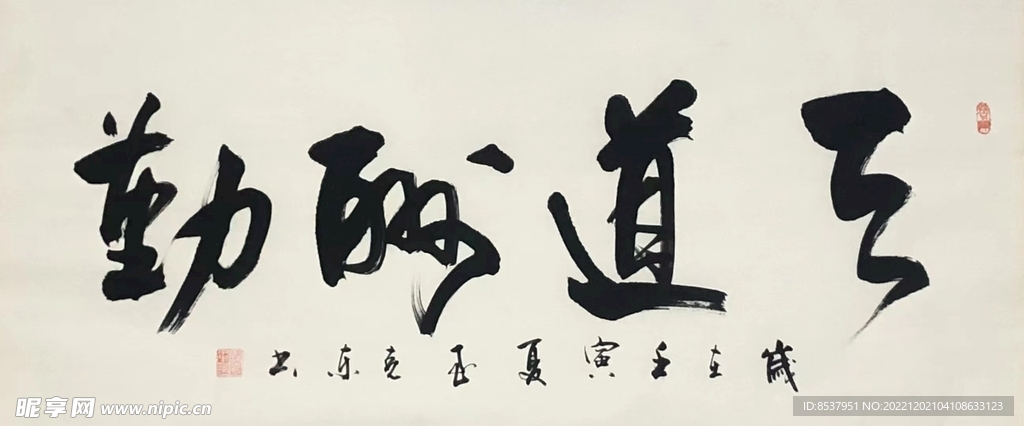 天道酬勤
歲在壬寅夏 克东书
昵享网 www.nipic.cn
ID:8537951 NO:20221202104108633123